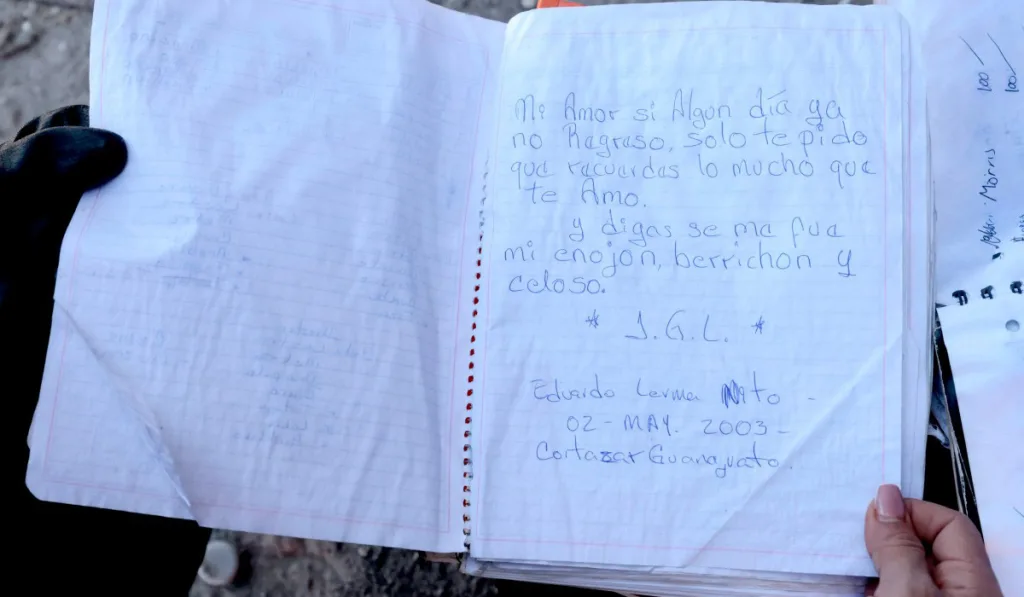 Mi Amor si Algon día ya
no Regreso, solo te pido
que recuerdes lo mucho que
te Amo.
y digas se me fue
mi enojon, berrichon y
celoso.
* J.G.L. *
Eduardo Lerma Nito -
02 - MAY. 2003 -
Cortazar Guanajuato.
Morris
100
100